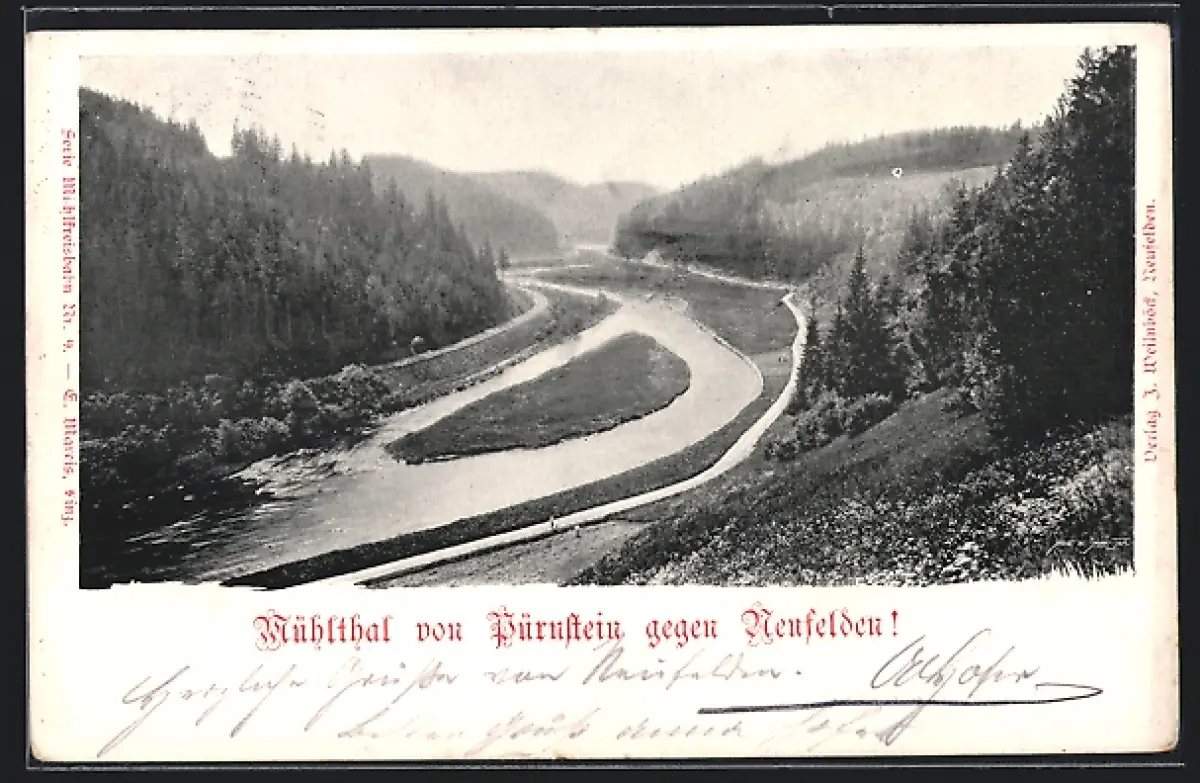 Serie Mühlkreisbahn Nr. 9. — E. Mareis, Linz.
Verlag J. Weilnböck, Neufelden.
Mühlthal von Pürnstein gegen Neufelden!
Herzliche Grüße von Neufelden.
Gruß anna